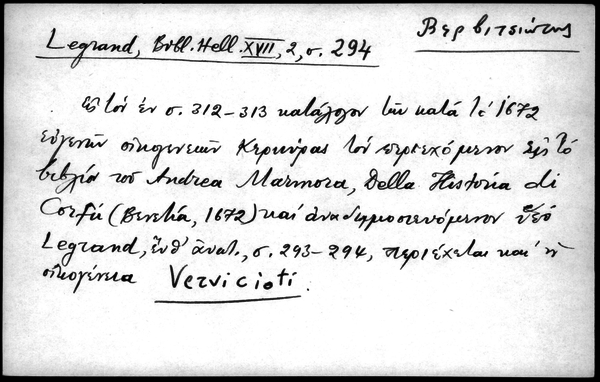 Βερβιτσιώτης
Legrand, Bibl. Hell. XVII, 2, σ. 294
εἰς τόν ἐν σ. 312-313 κατάλογον τῶν κατά τό 1672
εὐγενῶν οἰκογενειῶν Κερκύρας τόν περιεχόμενον εἰς τό
βιβλίον τοῦ Andrea Marmora, Della Historia di
Corfù (Βενετία, 1672) καί ἀναδημοσιευόμενον ὑπό
Legrand, ἔνθ' ἀνωτ., σ. 293-294, περιέχεται καί ἡ
οἰκογένεια Vervicioti.